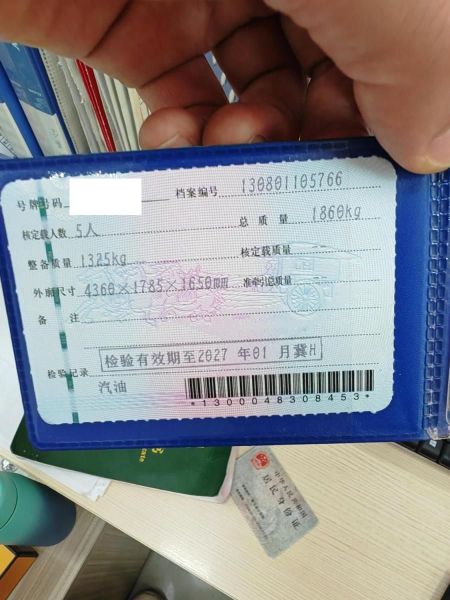 号牌号码 档案编号 130801105766
核定载人数 5人 总质量 1860kg
整备质量 1325kg 核定载质量
外廓尺寸 4360×1785×1650mm 准牵引总质量
备注
检验有效期至2027年01月冀H
检验记录
汽油
*1300048308453*
中华人民共和国
居民身份证